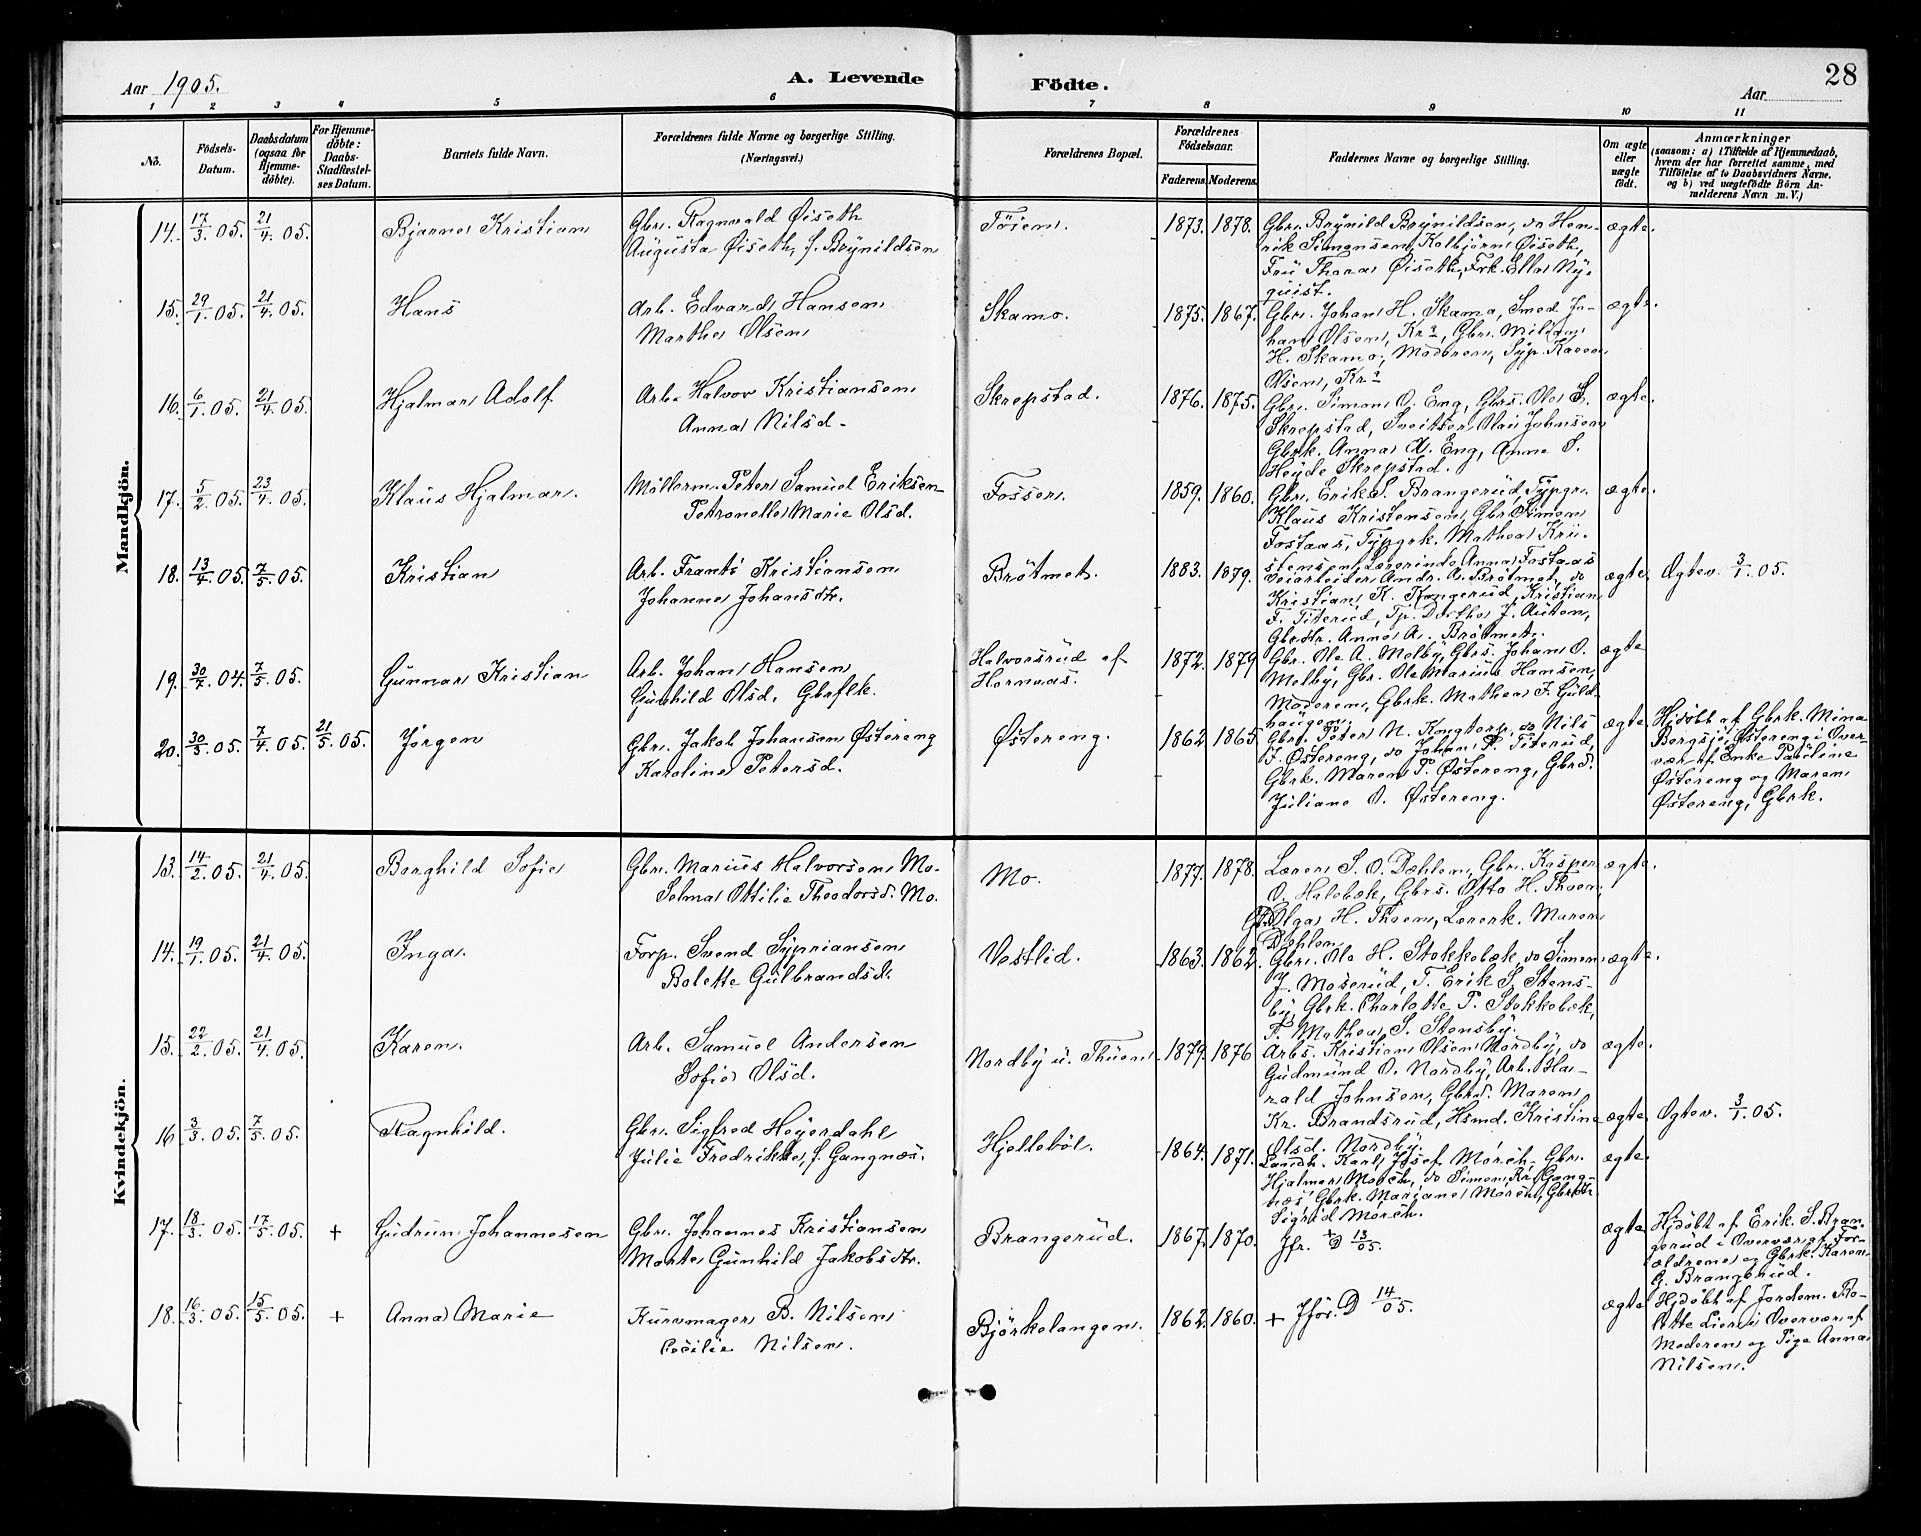 Aar 1905.
A. Levende
Födte.
Aar
28
1 2 3 4 5 6 7 8 9 10 11
No.
Födsels-
Datum.
Daabsdatum
(ogsaa for
Hjemme-
döbte).
For Hjemme-
döbte:
Daabs-
Stadfæstel-
ses Datum.
Barnets fulde Navn.
Forældrenes fulde Navne og borgerlige Stilling.
(Næringsvei.)
Forældrenes Bopæl.
Forældrenes
Födselsaar.
Faderens.
Moderens.
Faddernes Navne og borgerlige Stilling.
Om ægte
eller
uægte
födt.
Anmærkninger
(saasom: a) i Tilfælde af Hjemmedaab,
hvem der har forrettet samme, med
Tilföielse af to Daabsvidners Navne,
og b) ved uægtefödte Börn An-
melderens Navn m. V.)
Mandkjön.
14. 17/3 05. 21/4 05. Bjarne Kristian
Gbr. Ragnvald Øiseth
Augusta Øiseth, f. Brynildsen
Töien. 1873. 1878.
Gbr. Brynild Brynildsen, do Hen-
rik Simensen, Kolbjörn Øiseth,
Fru Thora Øiseth, Frk. Ella Ny-
quist.
ægte.
15. 29/1 05. 21/4 05. Hans
Arb. Edvard Hansen
Marthe Olsen
Skamo. 1875. 1867.
Gbr. Johan H. Skamo, Smed Jo-
han Olsen, Kra, Gbr. Mildan
H. Skamo, Moderen, Syp. Karen
Olsen, Kra
ægte.
16. 6/1 05. 21/4 05. Hjalmar Adolf
Arb. Halvor Kristiansen
Anna Nilsd.
Skrepstad. 1876. 1875.
Gbr. Simen O. Eng, Gbrs. Ole S.
Skrepstad, Sveitser Olai Johnsen
Gbrk. Anna A. Eng, Anne S.
Høyde Skrepstad.
ægte.
17. 5/2 05. 23/4 05. Klaus Hjalmar.
Møllerm. Peter Samuel Eriksen
Petronelle Marie Olsd.
Fossen. 1859. 1860.
Gbr. Erik S. Brangerud, Typgr.
Klaus Kristensen, Gbr. Simen
Fostaas, Typgrk. Mathea Kri-
stensen, Lærerinde Anna Fostaas
ægte.
18. 13/4 05. 7/5 05. Kristian
Arb. Frants Kristiansen
Johanne Johansdtr.
Brötmet. 1883. 1879.
Veiarbeider Andr. A. Brötmet, do
Kristian K. Kongerud, Kristian
F. Titerud, Tp. Dorthe J. Auten,
Gbrdtr. Anne A. Brötmet.
ægte. Ægtev. 3/1 05.
19. 30/7 04. 7/5 05. Gunnar Kristian
Arb. Johan Hansen
Gunhild Olsd. Gbrflk.
Halvorsrud af
Hornaas.
1872. 1879
Gbr. Ole A. Melby, Gbrs. Johan O.
Melby, Gbr. Ole Marius Hansen,
Moderen, Gbrk. Mathea F. Guld-
haugen.
ægte
20. 30/3 05. 7/4 05. 21/5 05. Jørgen
Gbr. Jakob Johansen Østereng
Karoline Petersd.
Østereng. 1862 1865.
Gbr. Peter N. Kongtorp, do Nils
J. Østereng, do Johan P. Titerud,
Gbrk. Maren P. Østereng, Gbrd.
Juliane O. Østereng.
ægte.
Hjdøbt af Gbrk. Mina
Bergsjø, Østereng i Over-
vær af Enke Pauline
Østereng og Maren
Østereng, Gbrk.
Kvindekjön.
13. 14/2 05. 21/4 05. Borghild Sofie
Gbr. Marius Halvorsen Mo.
Selma Ottilie Theodorsd. Mo.
Mo. 1877. 1878.
Lærer S. O. Dæhlen, Gbr. Kasper
O. Holebæk, Gbrs. Otto H. Thoen,
Gbd. Olga H. Thoen, Lærerk. Maren
Dæhlen
ægte.
14. 19/1 05. 21/4 05. Inga.
Forp. Svend Sypriansen
Bolette Gulbrandsdt.
Vestlid. 1863. 1862.
Gbr. Ole H. Stokkebæk, do Simen
J. Moserud, F. Erik S. Stens-
by, Gbrk. Charlotte P. Stokkebæk,
F. Mathea S. Stensby.
ægte.
15. 22/2 05. 21/4 05. Karen.
Arb. Samuel Andersen
Sofie Olsd.
Nordby u. Thuen. 1879. 1876
Arbs. Kristian Olsen Nordby, do
Gudmund O. Nordby, Arb. Ha-
rald Johnsen, Gbrd. Maren
Kr. Brandsrud, Hsmd. Kristine
Olsd. Nordby.
ægte.
ægte. Ægtev. 3/1 05.
16 3/3 05. 7/5 05. Ragnhild.
Gbr. Sigfred Heyerdahl
Julie Fredrikke, f. Gangnæs.
Hjellebøl. 1864. 1871.
Landh. Karl Josef Mørch, Gbr.
Hjalmar Mørch, do Simen Kr. Gang-
næs, Gbrk. Mariane Mørch, Gbrdtr.
Sigrid Mørch.
ægte.
17. 18/3 05. 17/5 05. + Gudrun Johannesen
Gbr. Johannes Kristiansen
Marte Gunhild Jakobsdtr.
Brangerud. 1867. 1870.
Jfr. + D 13/05.
ægte.
Hjdøbt af Erik S. Bran-
gerud i Overvær af For-
ældrene og Gbrk. Karen
G. Brangerud.
18. 16/3 05. 15/5 05. + Anna Marie
Kurvmager B. Nilsen
Cecilie Nilsen.
Bjørkelangen. 1862. 1860.
+ Jfør. D 14/05.
ægte
Hjdøbt af Jordem. Bo-
lette Lier i Overvær af
Moderen og Pige Anna
Nilsen.